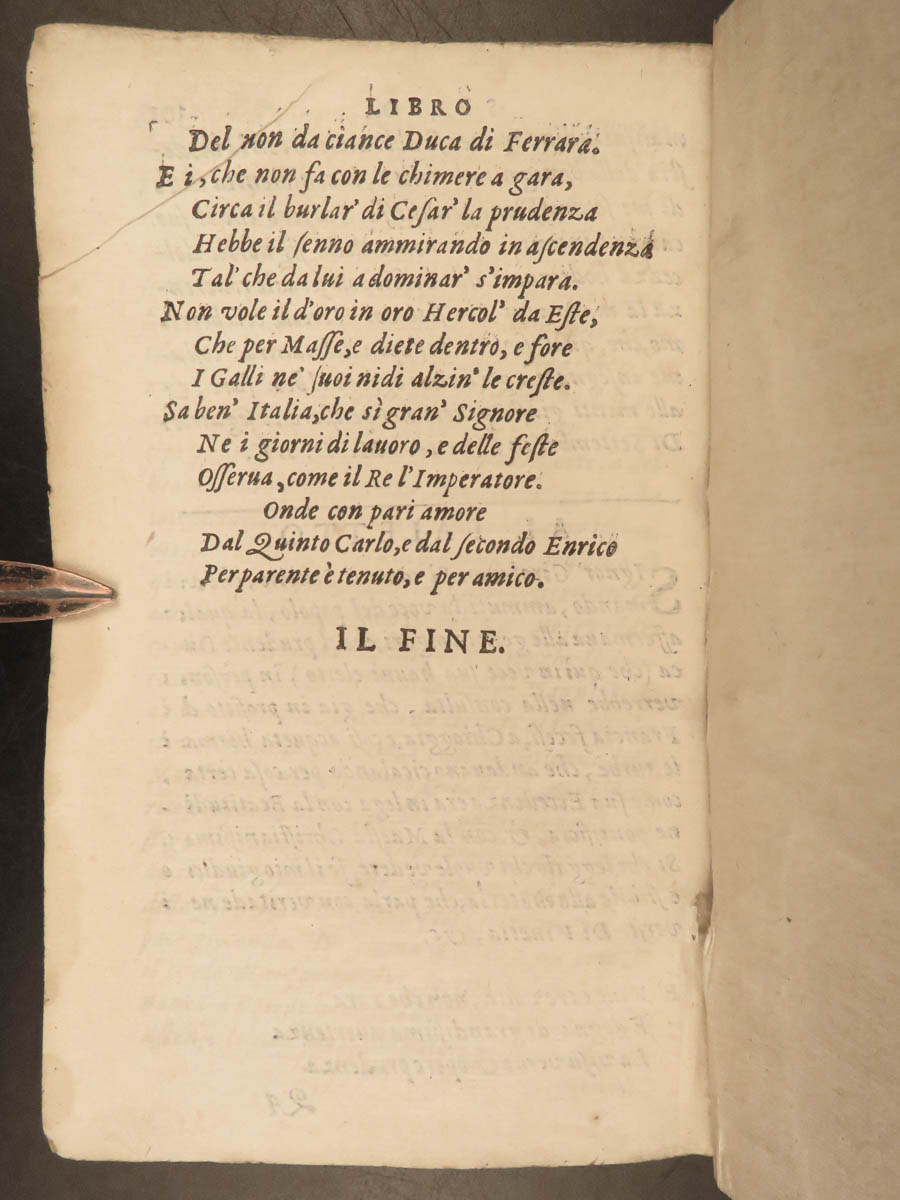 LIBRO
Del non da ciance Duca di Ferrara.
E i, che non fa con le chimere a gara,
Circa il burlar' di Ceſar' la prudenza
Hebbe il ſenno ammirando in aſcendenza
Tal' che da lui a dominar' s'impara.
Non vole il d'oro in oro Hercol' da Eſte,
Che per Maſſe, e diete dentro, e fore
I Galli ne' ſuoi nidi alzin' le creſte.
Sa ben' Italia, che sì gran' Signore
Ne i giorni di lauoro, e delle feſte
Oſſerua, come il Re l'Imperatore.
Onde con pari amore
Dal Quinto Carlo, e dal ſecondo Enrico
Per parente è tenuto, e per amico.
IL FINE.